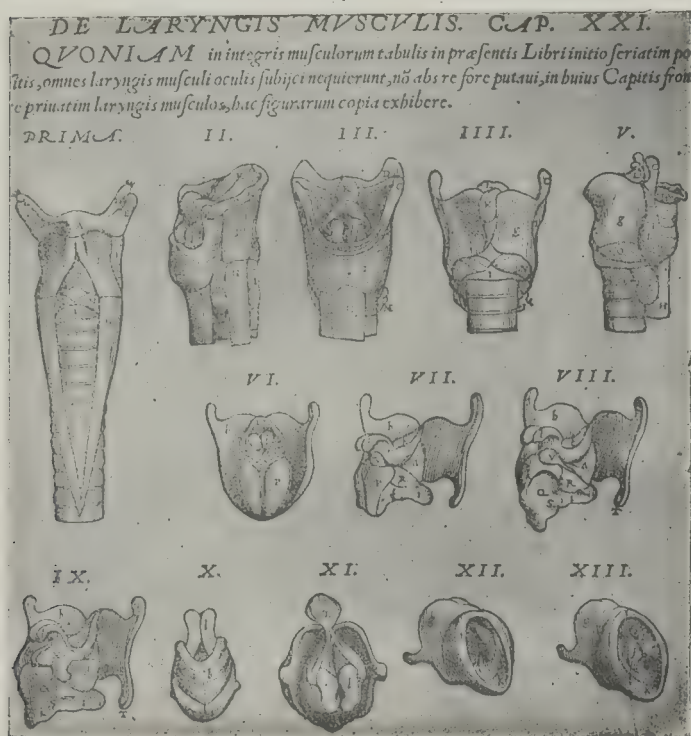 DE LARYNGIS MVSCVLIS. CAP. XXI.
QVONIAM in integris musculorum tabulis in præsentis Libri initio seriatim po
sitis, omnes laryngis musculi oculis subijci nequierunt, nō abs re fore putaui, in huius Capitis fron
e priuatim laryngis musculos, hac figurarum copia exhibere.
PRIMA. II. III. IIII. V.
VI. VII. VIII.
IX. X. XI. XII. XIII.